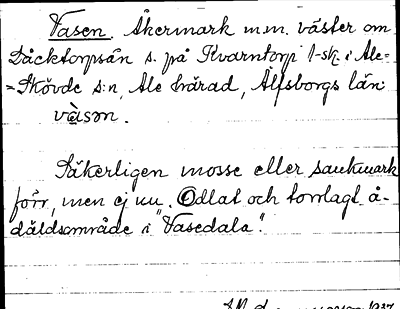 Vasen. Åkermark m.m. väster om
Däcktorpsån s. på Kvarntorp 1-sk i Ale-
=Skövde s:n, Ale härad, Älfsborgs län
vàsən.
Säkerligen mosse eller sankmark
förr, men ej nu. Odlat och torrlagt å-
däldsområde i "Vasedala".
1937